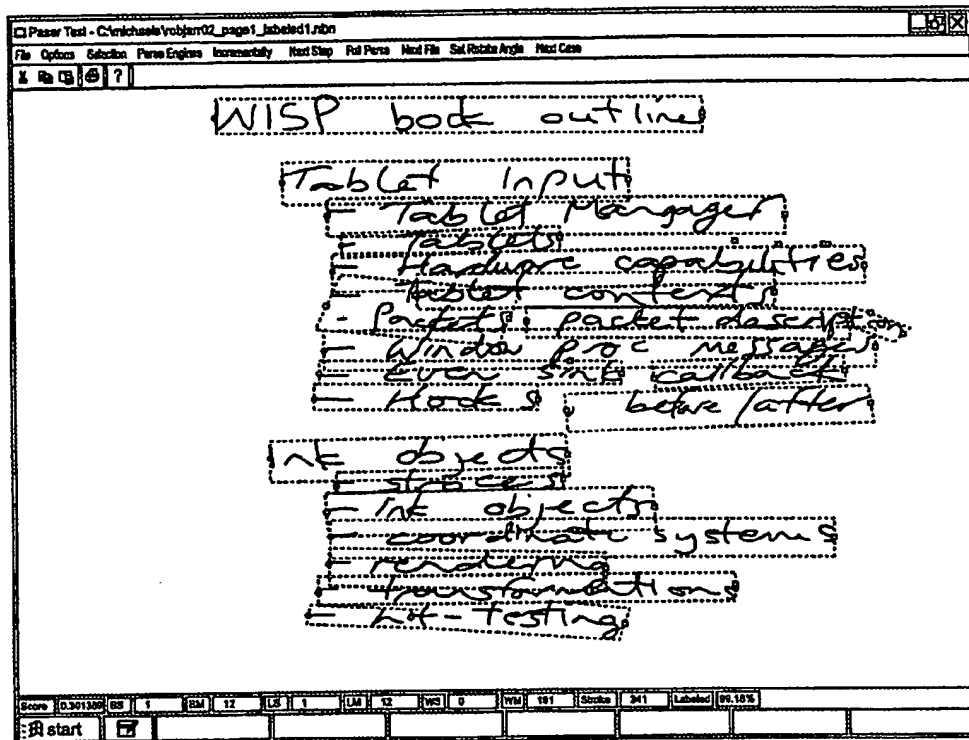 Paser Test - C:\michaels\robjarr02_page1_labeled1.nbn
File Options Selection Parse Engines Incrementally Next Step Full Parse Next File Set Rotate Angle Next Case
?
WISP book outline
Tablet Input
- Tablet Mangager
- Tablets
- Hardware capabilities
- Tablet contexts
- Packets, packet description
- Window proc messages
- Even sink callback
- Hooks before/after
Ink objects
- stroces
- ink objects
- coordinate systems
- rendering
- transformations
- hit-testing
Score 0.301389 BS 1 BM 12 LS 1 LM 12 WS 0 WM 191 Stroke 341 Labeled 99.18%
start